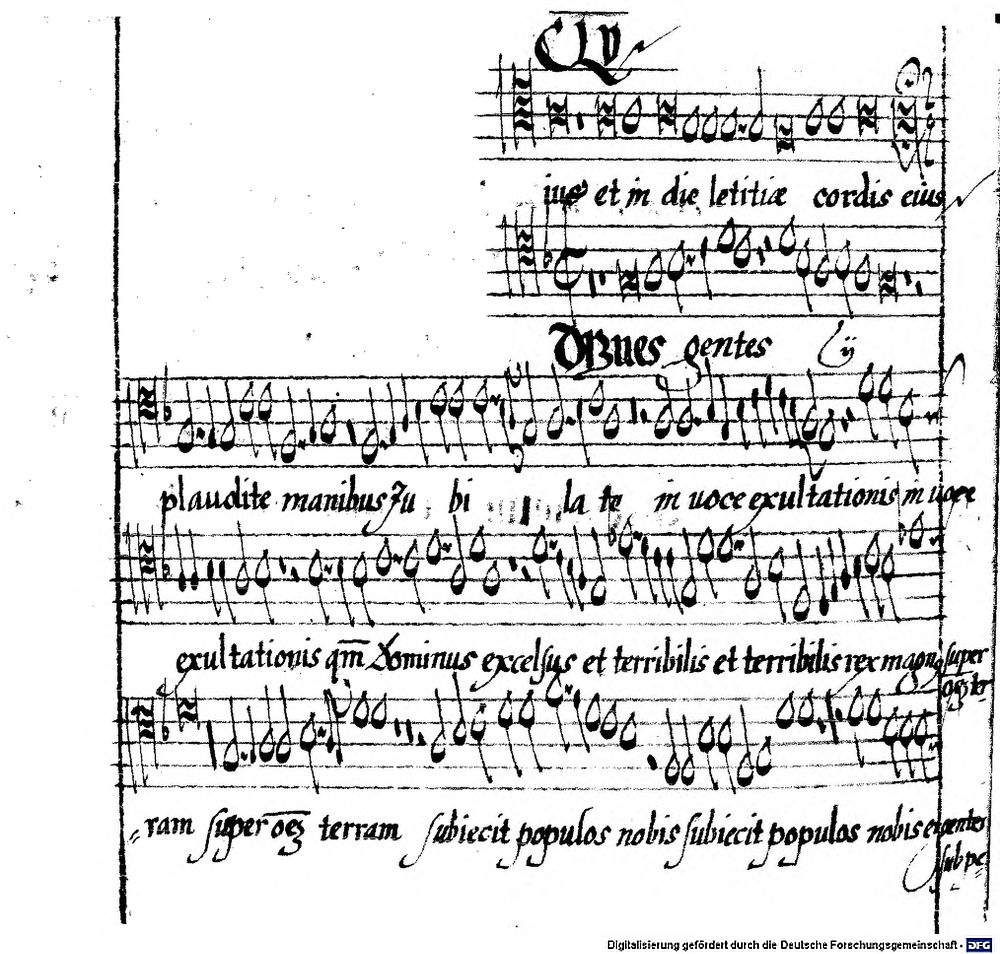 CLV
ius et in die letitiæ cordis eius
OMnes gentes ij
plaudite manibus Ju bi la te in uoce exultationis in uoce
exultationis qm̄ Dominus excelsus et terribilis et terribilis rex magn9 super
ram super oēs terram subiecit populos nobis subiecit populos nobis et gentes
sub pe
Digitalisierung gefördert durch die Deutsche Forschungsgemeinschaft - DFG